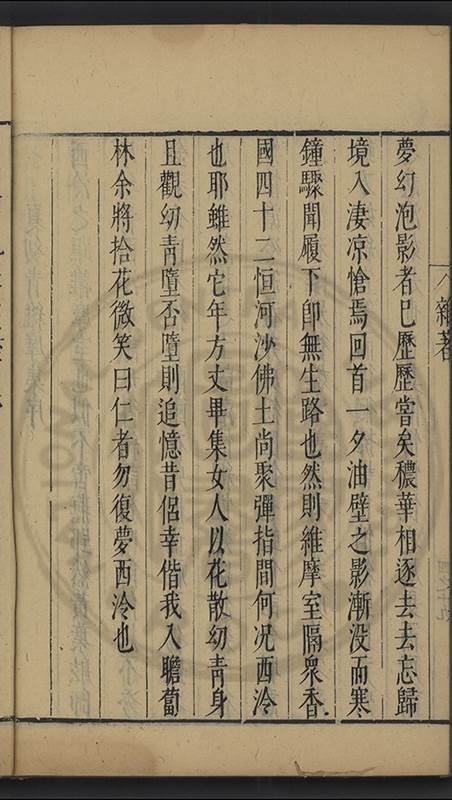 雜著
夢幻泡影者已歷歷嘗矣穠華相逐去去忘歸
境入淒凉愴焉回首一夕油壁之影漸没而寒
鐘驟聞履下卽無生路也然則維摩室隔衆香
國四十二恒河沙佛土尚聚彈指間何况西泠
也耶雖然它年方丈畢集女人以花散幼青身
且觀幼青墮否墮則追憶昔侶幸偕我入瞻蔔
林余將拾花微笑曰仁者勿復夢西泠也